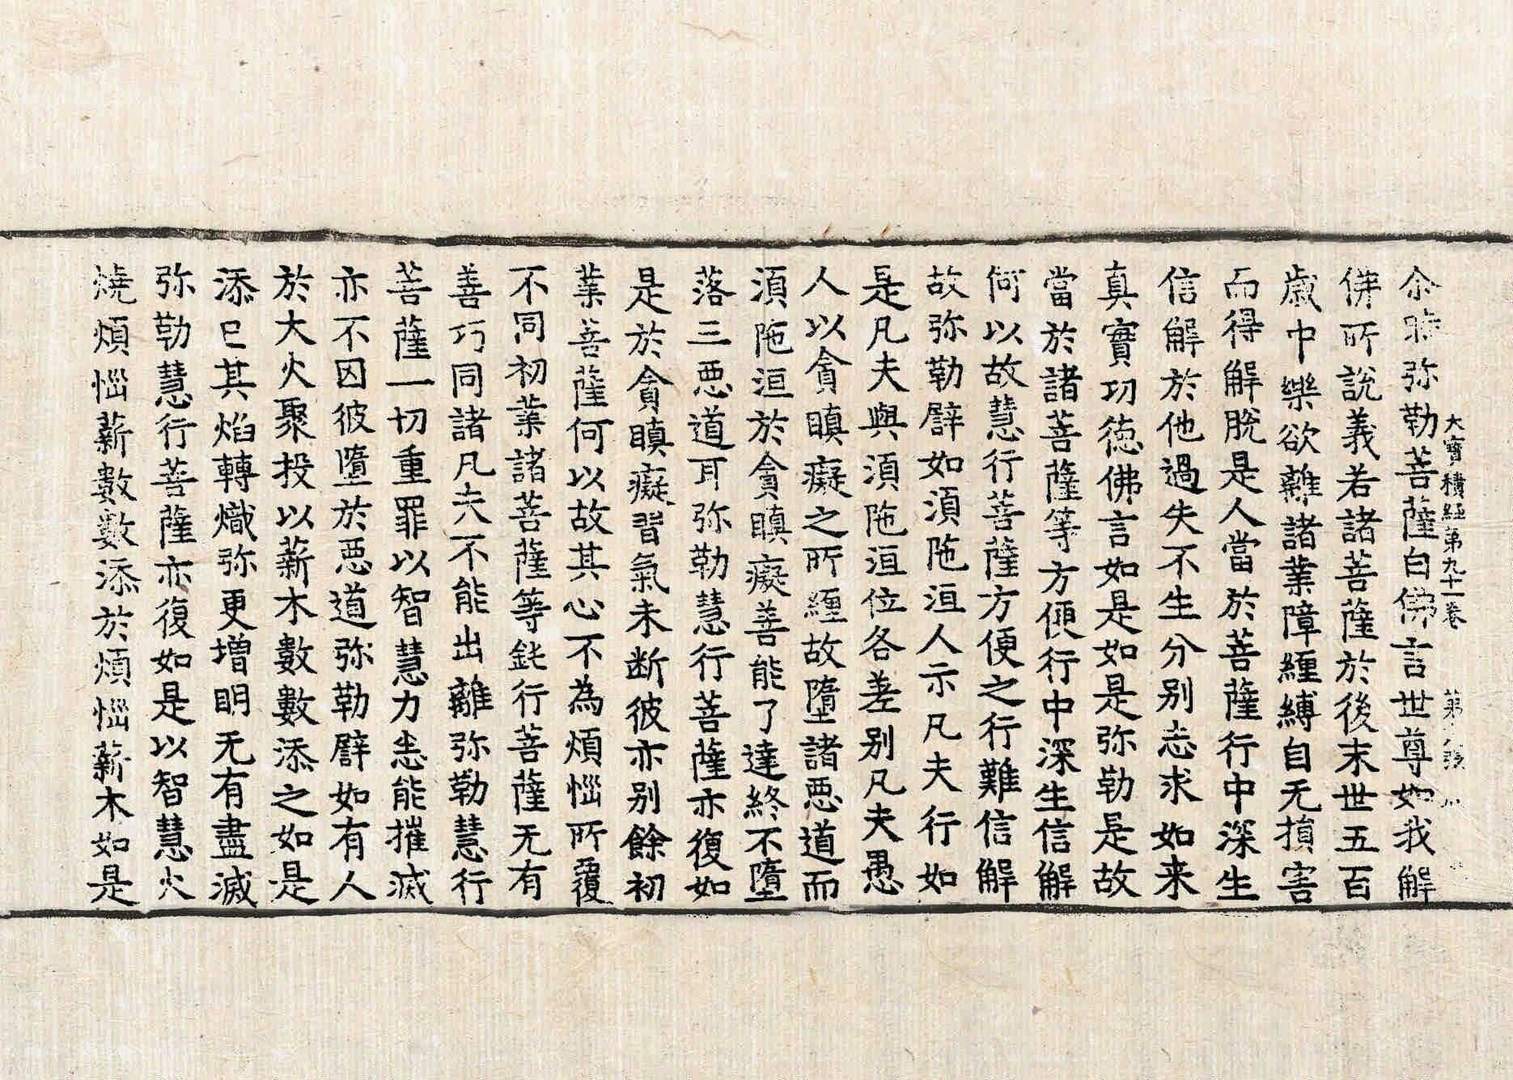 大寶積經第九十一卷 第 張
尒時弥勒菩薩白佛言世尊如我解
佛所說義若諸菩薩於後末世五百
歲中樂欲離諸業障纏縛自无損害
而得解脫是人當於菩薩行中深生
信解於他過失不生分別志求如来
真實功德佛言如是如是弥勒是故
當於諸菩薩等方便行中深生信解
何以故慧行菩薩方便之行難信解
故弥勒譬如湏陁洹人示凡夫行如
是凡夫與湏陁洹位各差別凡夫愚
人以貪瞋癡之所纏故墮諸惡道而
湏陁洹於貪瞋癡善能了達終不墮
落三惡道耳弥勒慧行菩薩亦復如
是於貪瞋癡習氣未断彼亦別餘初
業菩薩何以故其心不為煩惱所覆
不同初業諸菩薩等鈍行菩薩无有
善巧同諸凡夫不能出離弥勒慧行
菩薩一切重罪以智慧力悉能摧滅
亦不因彼墮於惡道弥勒譬如有人
於大火聚投以薪木數數添之如是
添已其焰轉熾弥更增明无有盡滅
弥勒慧行菩薩亦復如是以智慧火
燒煩惱薪數數添於煩惱薪木如是